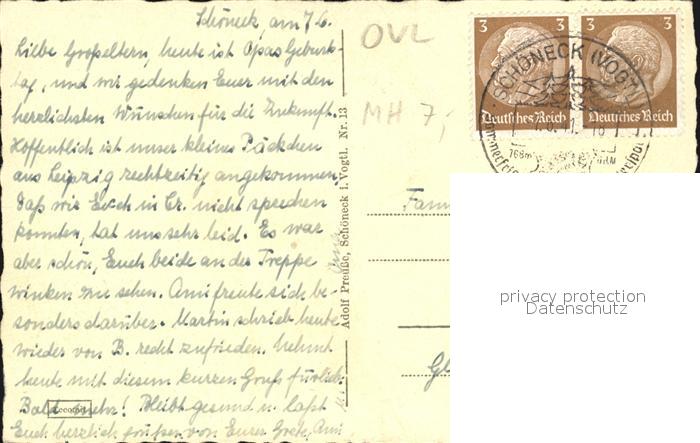 Schöneck, am 7.6.
Liebe Großeltern, heute ist Opas Geburts-
tag, und wir gedenken Euer mit den
herzlichsten Wünschen für die Zukunft.
Hoffentlich ist unser kleines Päckchen
aus Leipzig rechtzeitig angekommen.
Daß wir Euch in Cr. nicht sprechen
konnten, tat uns sehr leid. Es war
aber schön, Euch beide an der Treppe
winken zu sehen. Ami freute sich be-
sonders darüber. Martin schrieb heute
wieder von B. recht zufrieden. Nehmt
heute mit diesem kurzen Gruß fürlieb.
Bald mehr! Bleibt gesund u. laßt
Euch herzlich grüßen von Eurer Grete, Ami
Adolf Preuße, Schöneck i. Vogtl. Nr. 13
OVL
MH 7,-
3 3
3 3
Deutsches Reich
Deutsches Reich
SCHÖNECK (VOGTL
768m
Fam
Gl
privacy protection
Datenschutz